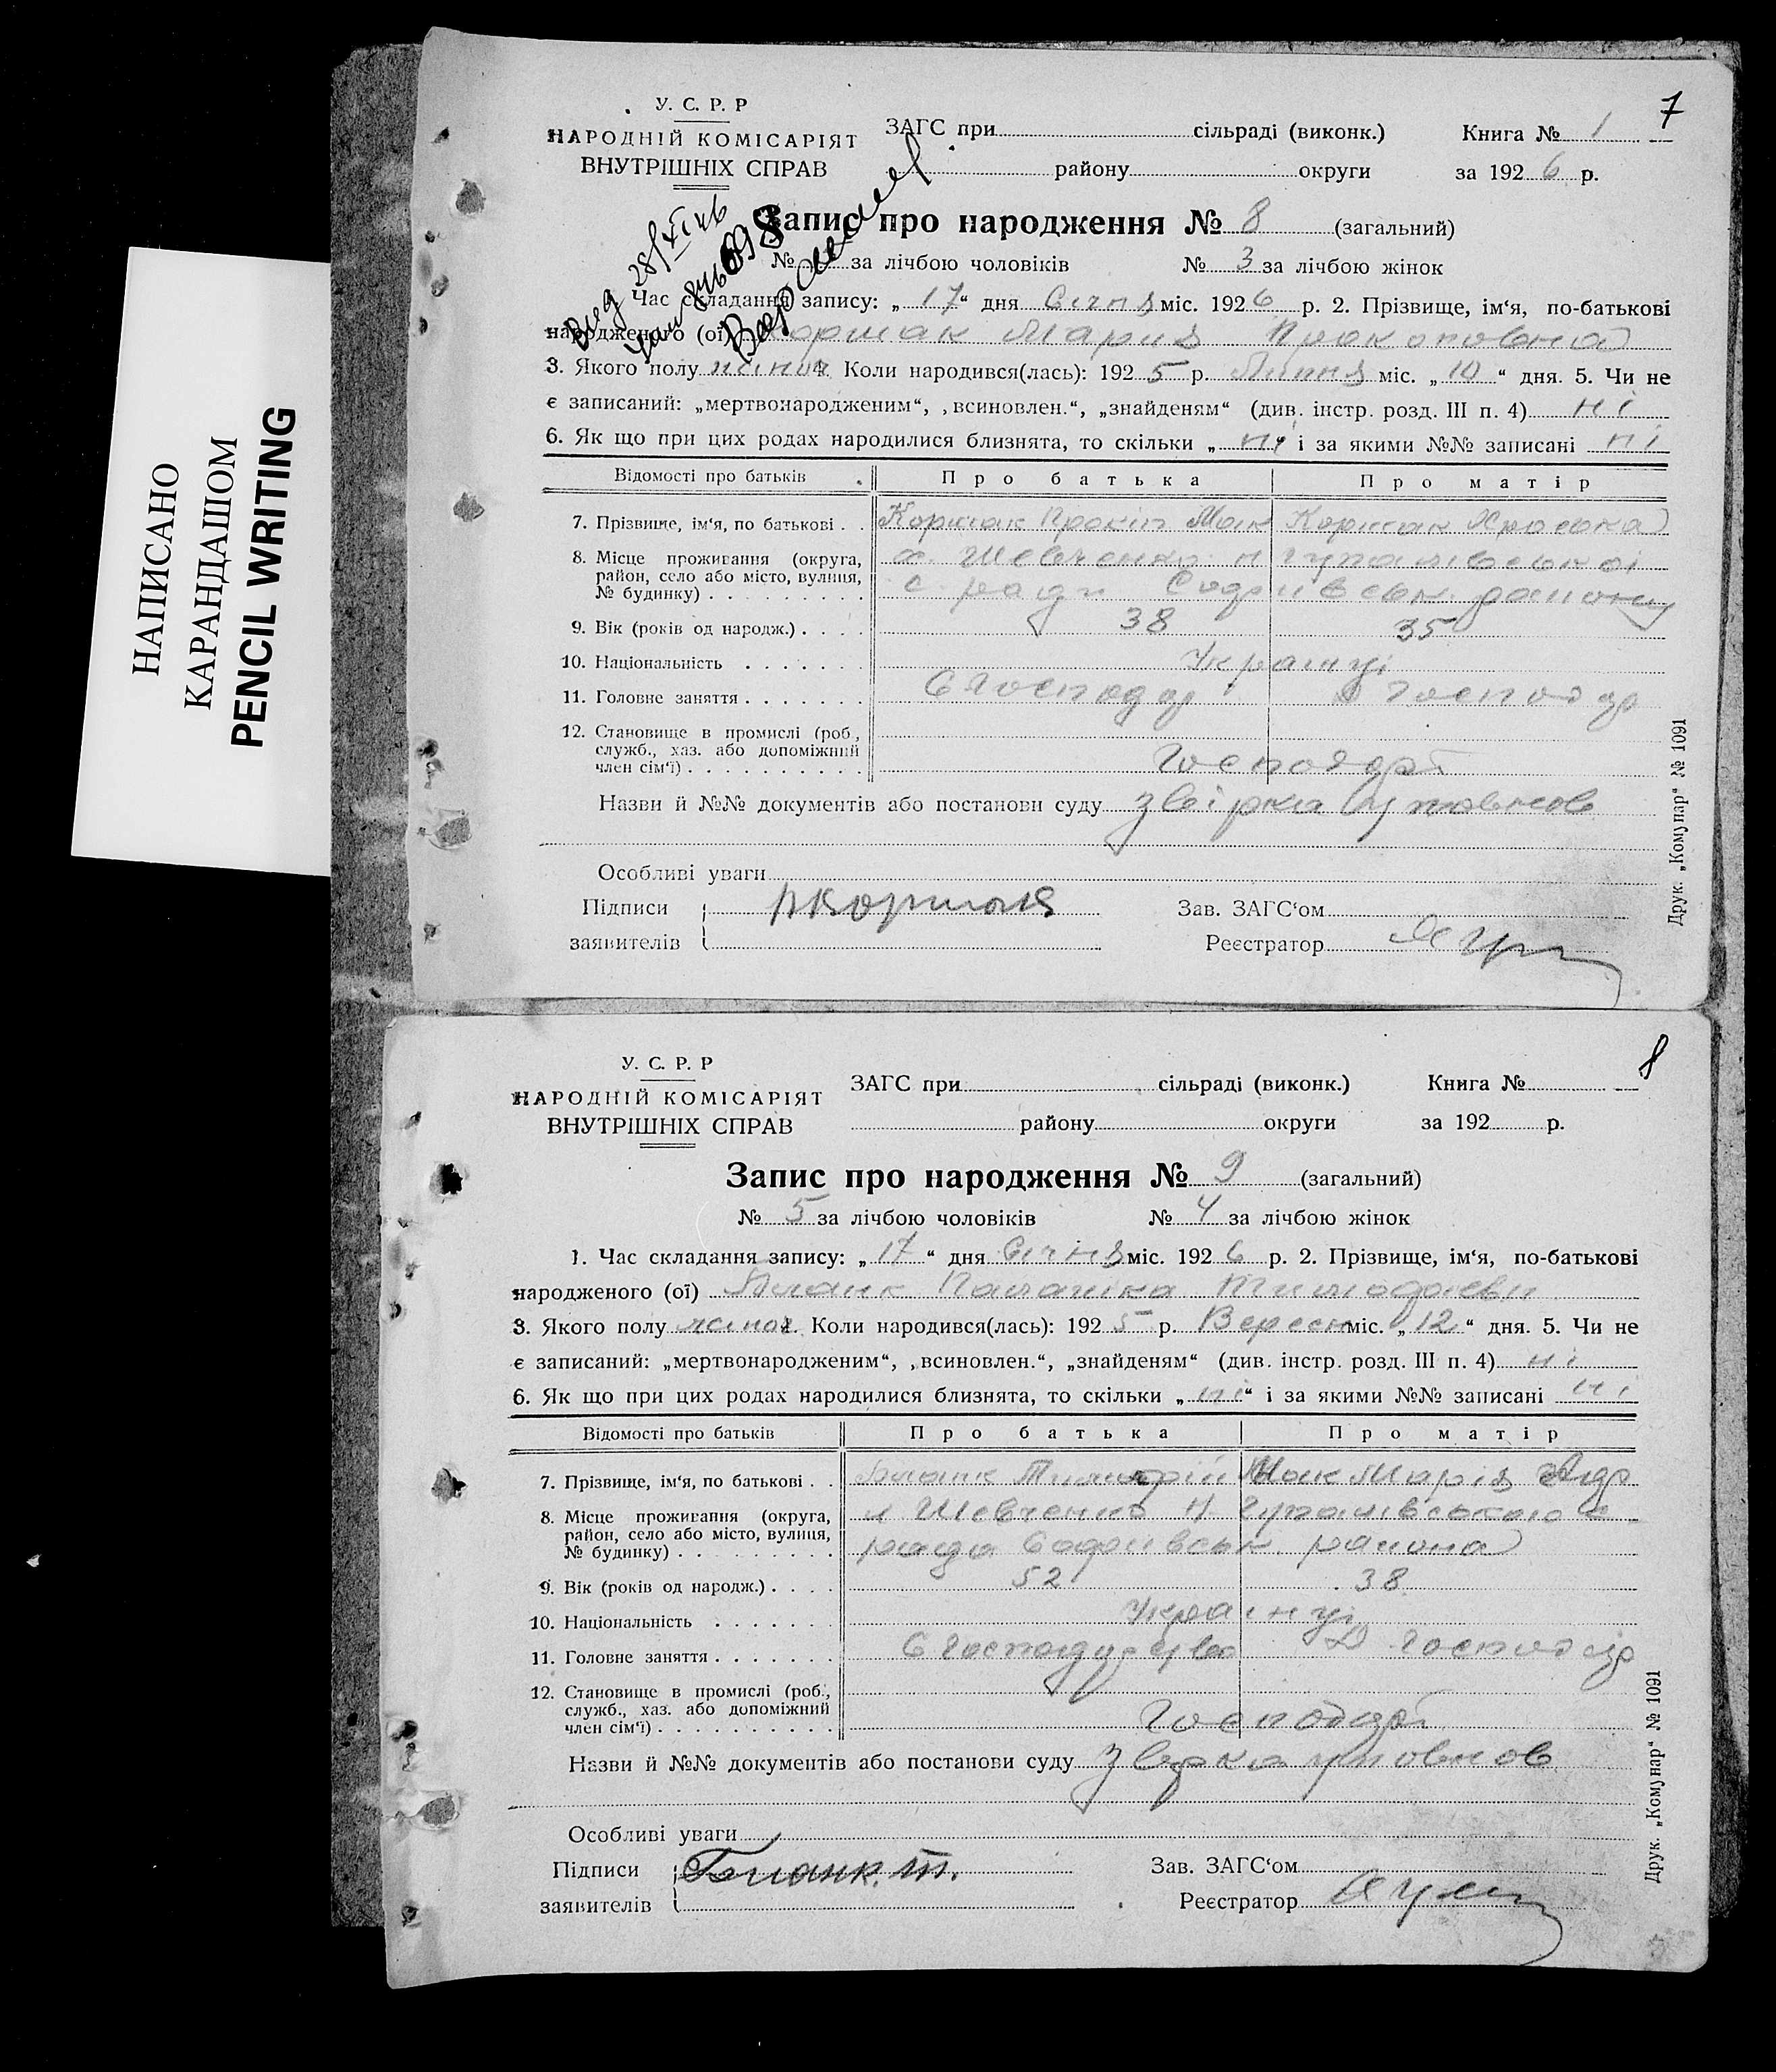 НАПИСАНО
КАРАНДАШОМ
PENCIL WRITING
7
У. С. Р. Р
НАРОДНІЙ КОМІСАРІЯТ
ВНУТРІШНІХ СПРАВ
ЗАГС при сільраді (виконк.) Книга № 1
району округи за 192 6 р.
Запис про народження № 8 (загальний)
№ за лічбою чоловіків № 3 за лічбою жінок
Час складання запису: „ 17 “ дня Січня міс. 192 6 р. 2. Прізвище, ім‘я, по-батькові
народженого (ої) Коршак Мария Прокоповна
3. Якого полу жіноч. Коли народився(лась): 192 5 р. Липня міс. „ 10 “ дня. 5. Чи не
є записаний: „мертвонародженим“, „всиновлен.“, „знайденям“ (див. інстр. розд. III п. 4) ні
6. Як що при цих родах народилися близнята, то скільки „ ні “ і за якими №№ записані ні
Відомості про батьків Про батька Про матір
7. Прізвище, ім‘я, по батькові . . Коршак Прокіп Мак Коршак
8. Місце проживання (округа, х. Шевченко Н Гупалівської
район, село або місто, вулиця,
№ будинку) . . . . . . . . . с ради район
9. Вік (років од народж.) . . . . 38 35
10. Національність . . . . . . Українці
11. Головне заняття . . . . . . . С Господар Д Господар
12. Становище в промислі (роб.,
служб., хаз. або допоміжний
член сім‘ї) . . . . . . . . . . Господарі
Назви й №№ документів або постанови суду звірка установ
Особливі уваги
Підписи Коршак Зав. ЗАГС‘ом
заявителів Реєстратор
Друк. „Комунар“ № 1091
8
У. С. Р. Р
НАРОДНІЙ КОМІСАРІЯТ
ВНУТРІШНІХ СПРАВ
ЗАГС при сільраді (виконк.) Книга №
району округи за 192 р.
Запис про народження № 9 (загальний)
№ 5 за лічбою чоловіків № 4 за лічбою жінок
1. Час складання запису: „ 17 “ дня Січня міс. 192 6 р. 2. Прізвище, ім‘я, по-батькові
народженого (ої) Бланк
3. Якого полу жіноч. Коли народився(лась): 192 5 р. Вересн міс. „ 12 “ дня. 5. Чи не
є записаний: „мертвонародженим“, „всиновлен.“, „знайденям“ (див. інстр. розд. III п. 4) ні
6. Як що при цих родах народилися близнята, то скільки „ ні “ і за якими №№ записані ні
Відомості про батьків Про батька Про матір
7. Прізвище, ім‘я, по батькові . . Бланк Марія
8. Місце проживання (округа, х Шевченко Н Гупалівського с
район, село або місто, вулиця,
№ будинку) . . . . . . . . . рада района
9. Вік (років од народж.) . . . . 52 38
10. Національність . . . . . . Українці
11. Головне заняття . . . . . . . С Господарство Д Господар
12. Становище в промислі (роб.,
служб., хаз. або допоміжний
член сім‘ї) . . . . . . . . . . Господарі
Назви й №№ документів або постанови суду звірка установ
Особливі уваги
Підписи Бланк. Т. Зав. ЗАГС‘ом
заявителів Реєстратор
Друк. „Комунар“ № 1091